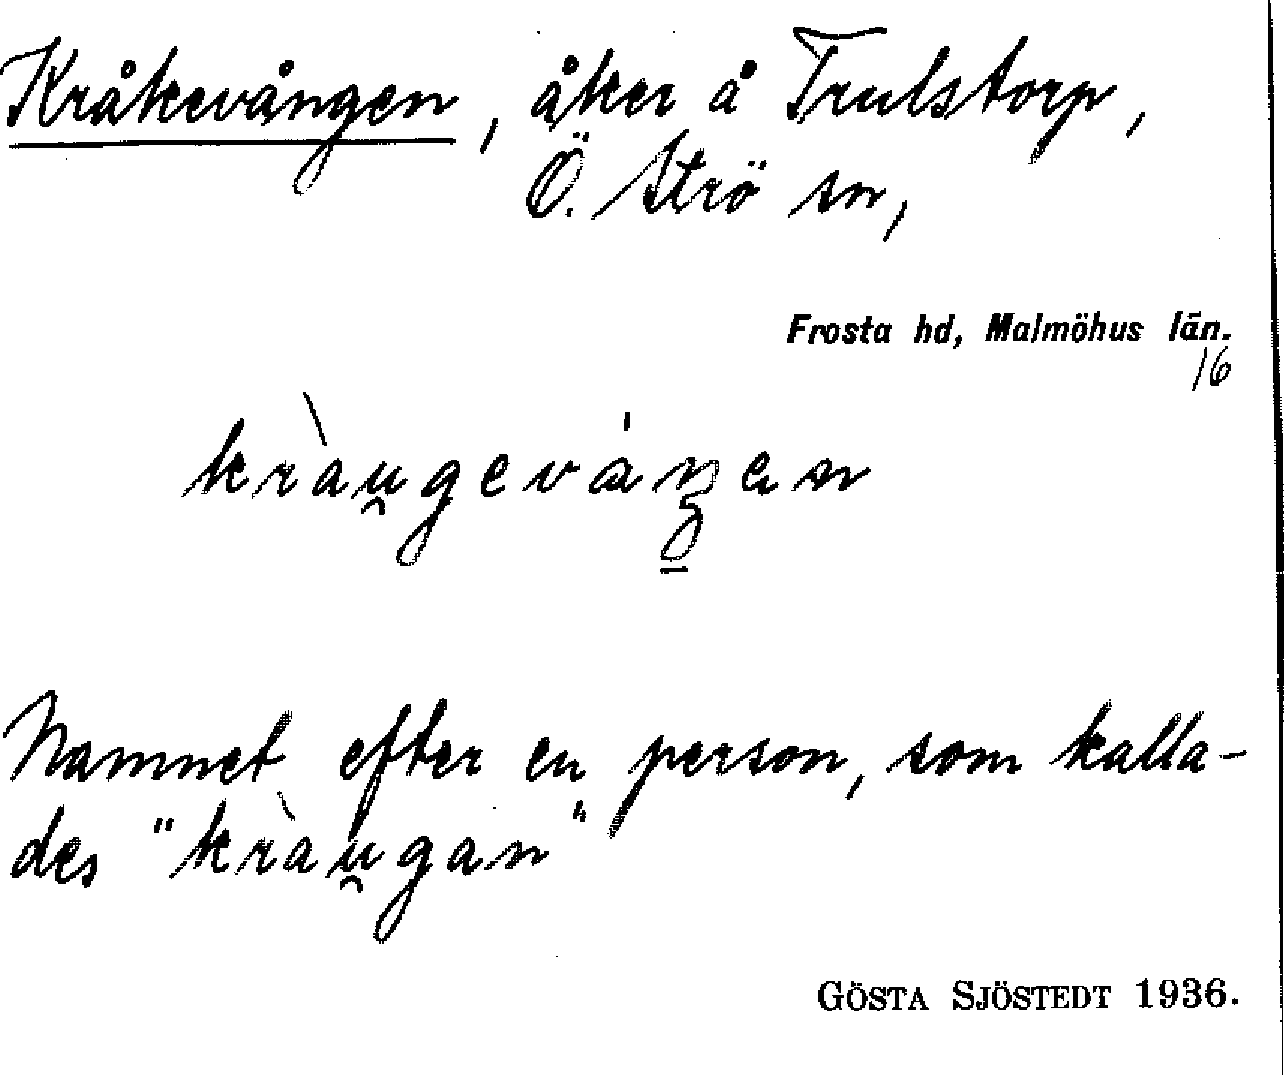 Kråkevången, åker å Trulstorp,
Ö. Strö sn,
Frosta hd, Malmöhus län.
16
kràu̯geváŋen
Namnet efter en person, som kalla-
des "kràu̯gan"
GÖSTA SJÖSTEDT 1936.